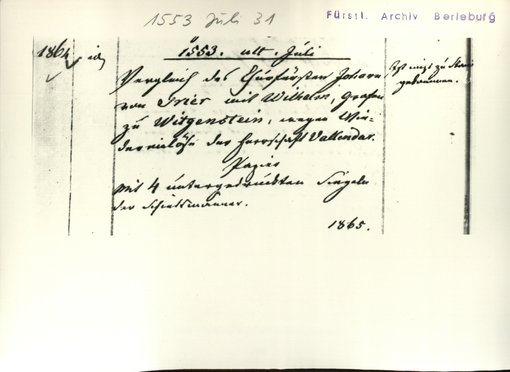 1553 Juli 31
Fürstl. Archiv Berleburg
1864
1553. ult. Juli
Vergleich des Churfürsten Johann
von Trier mit Wilhelm, Grafen
zu Witgenstein, wegen Wie-
dereinlöse der Herrschaft Vallendar.
Papier
Mit 4 untergedruckten Siegeln
der Schiedsmänner.
Ist nicht zu
gekommen.
1865.